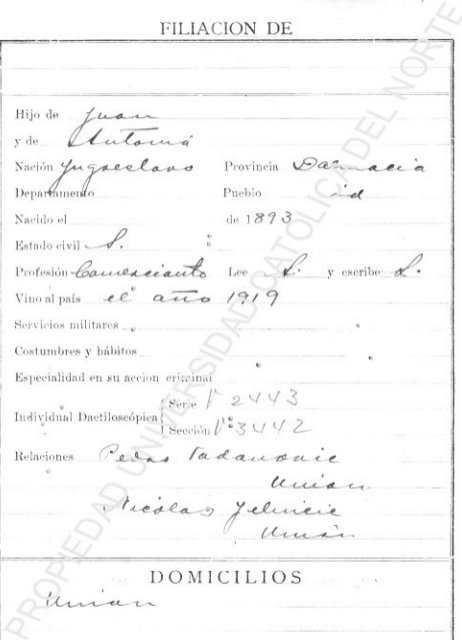 FILIACION DE
Hijo de Juan
y de Antonia
Nación Yugoeslavo Provincia Dalmacia
Departamento Pueblo id
Nacido el de 1893
Estado civil S.
Profesión Comerciante Lee S. y escribe S.
Vino al país el año 1919
Servicios militares
Costumbres y hábitos
Especialidad en su accion criminal
Individual Dactiloscópica { Serie V 2443
Sección V 3442
Relaciones Pedro
Union
Nicolas
Unión
DOMICILIOS
Union
PROPIEDAD UNIVERSIDAD CATOLICA DEL NORTE